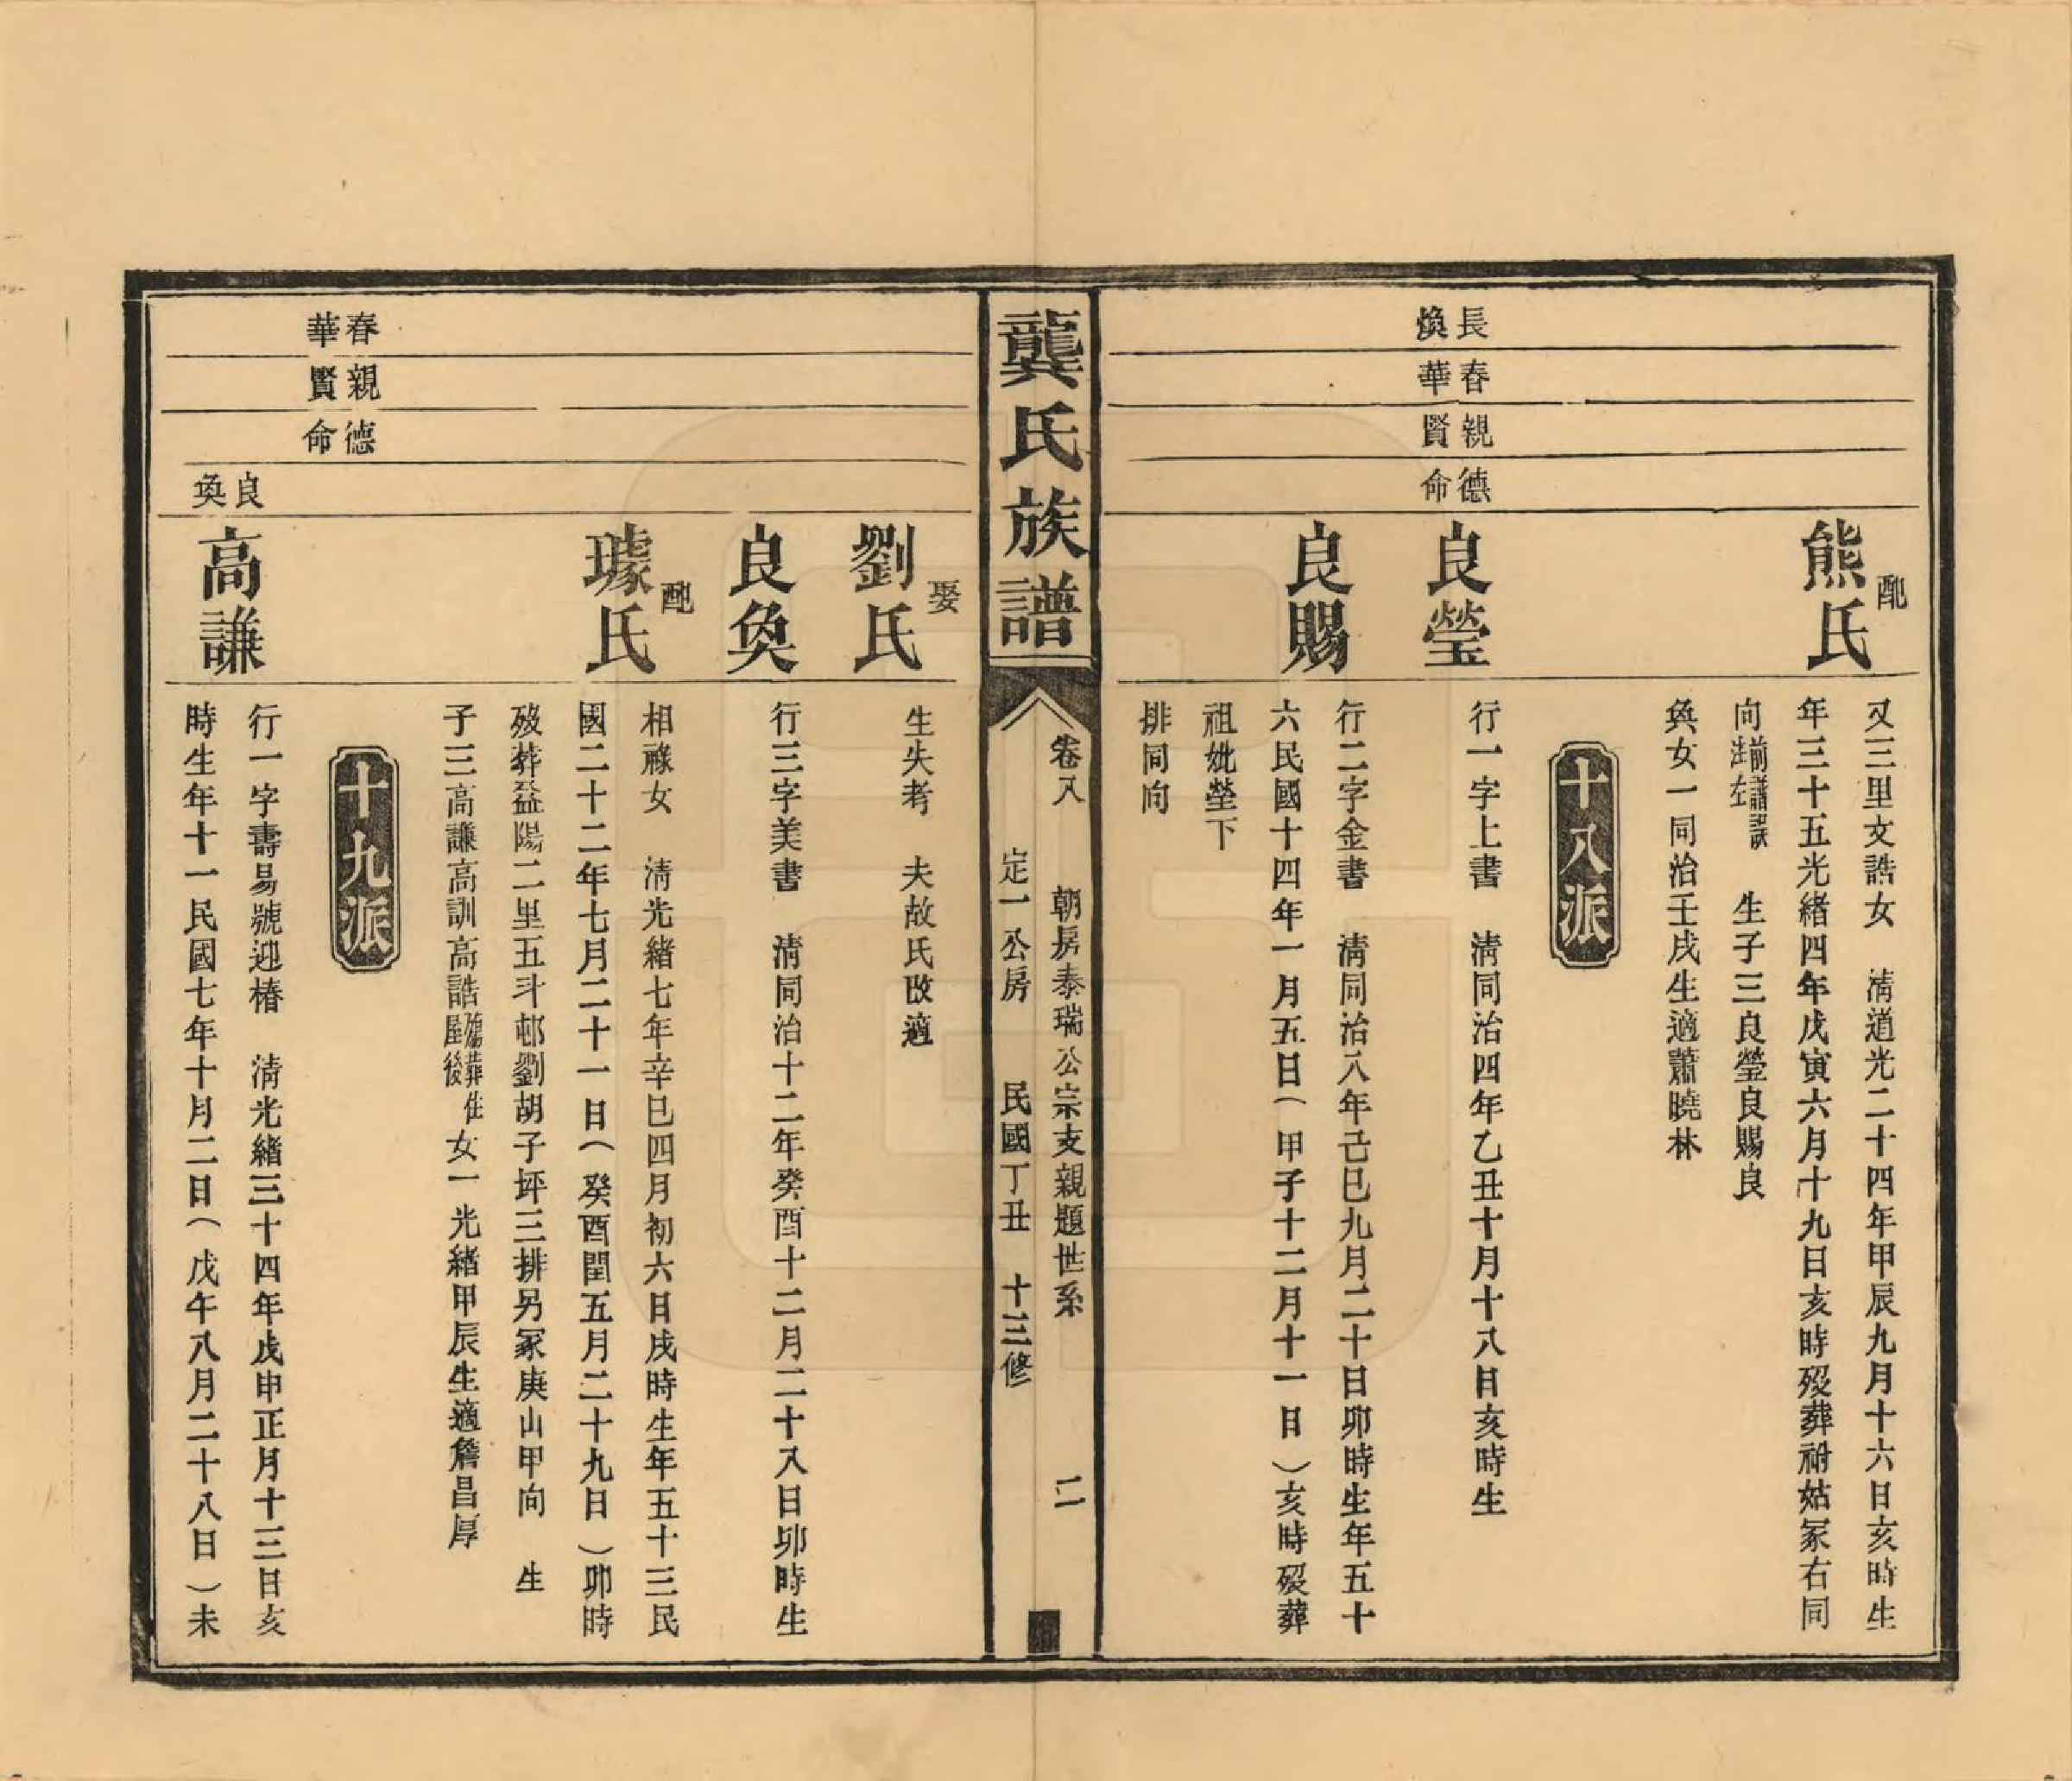 長煥
春華
親賢
德命
配
熊氏
又三里文誥女　清道光二十四年甲辰九月十六日亥時生
年三十五光緒四年戊寅六月十九日亥時歿葬祔姑冢右同
向前譜誤註左　生子三良瑩良賜良
奐女一同治壬戌生適蕭曉林
十八派
良瑩
行一字上書　清同治四年乙丑十月十八日亥時生
良賜
行二字金書　清同治八年己巳九月二十日卯時生年五十
六民國十四年一月五日（甲子十二月十一日）亥時歿葬
祖妣塋下
排同向
龔氏族譜
卷八　朝房泰瑞公宗支親題世系　二
定一公房　民國丁丑　十三修
娶
劉氏
生失考　夫故氏改適
良奐
行三字美書　清同治十二年癸酉十二月二十八日卯時生
配
璩氏
相祿女　清光緒七年辛巳四月初六日戌時生年五十三民
國二十二年七月二十一日（癸酉閏五月二十九日）卯時
歿葬益陽二里五斗邨劉胡子坪三排另冢庚山甲向　生
子三高謙高訓高誥殤葬住屋後女一光緒甲辰生適詹昌厚
春華
親賢
德命
十九派
良奐
高謙
行一字壽易號迎椿　清光緒三十四年戊申正月十三日亥
時生年十一民國七年十月二日（戊午八月二十八日）未